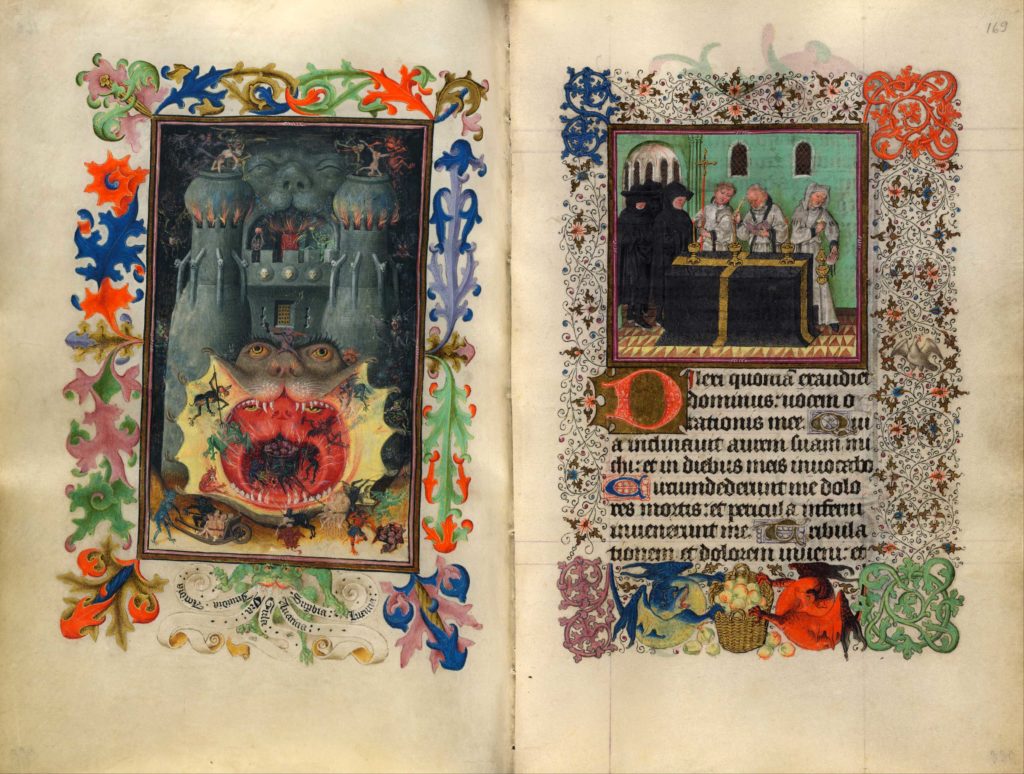 Supbia:
Auaricia:
Gula:
Ira
Inuidia
169
Dilexi quoniā exaudiet
dominus: uocem o
rationis mee. Qui
a inclinauit aurem suam mi
chi: et in diebus meis inuocabo
Circumdederunt me dolo
res mortis: et pericula inferni
inuenerunt me. Tribula
tionem et dolorem inueni: et